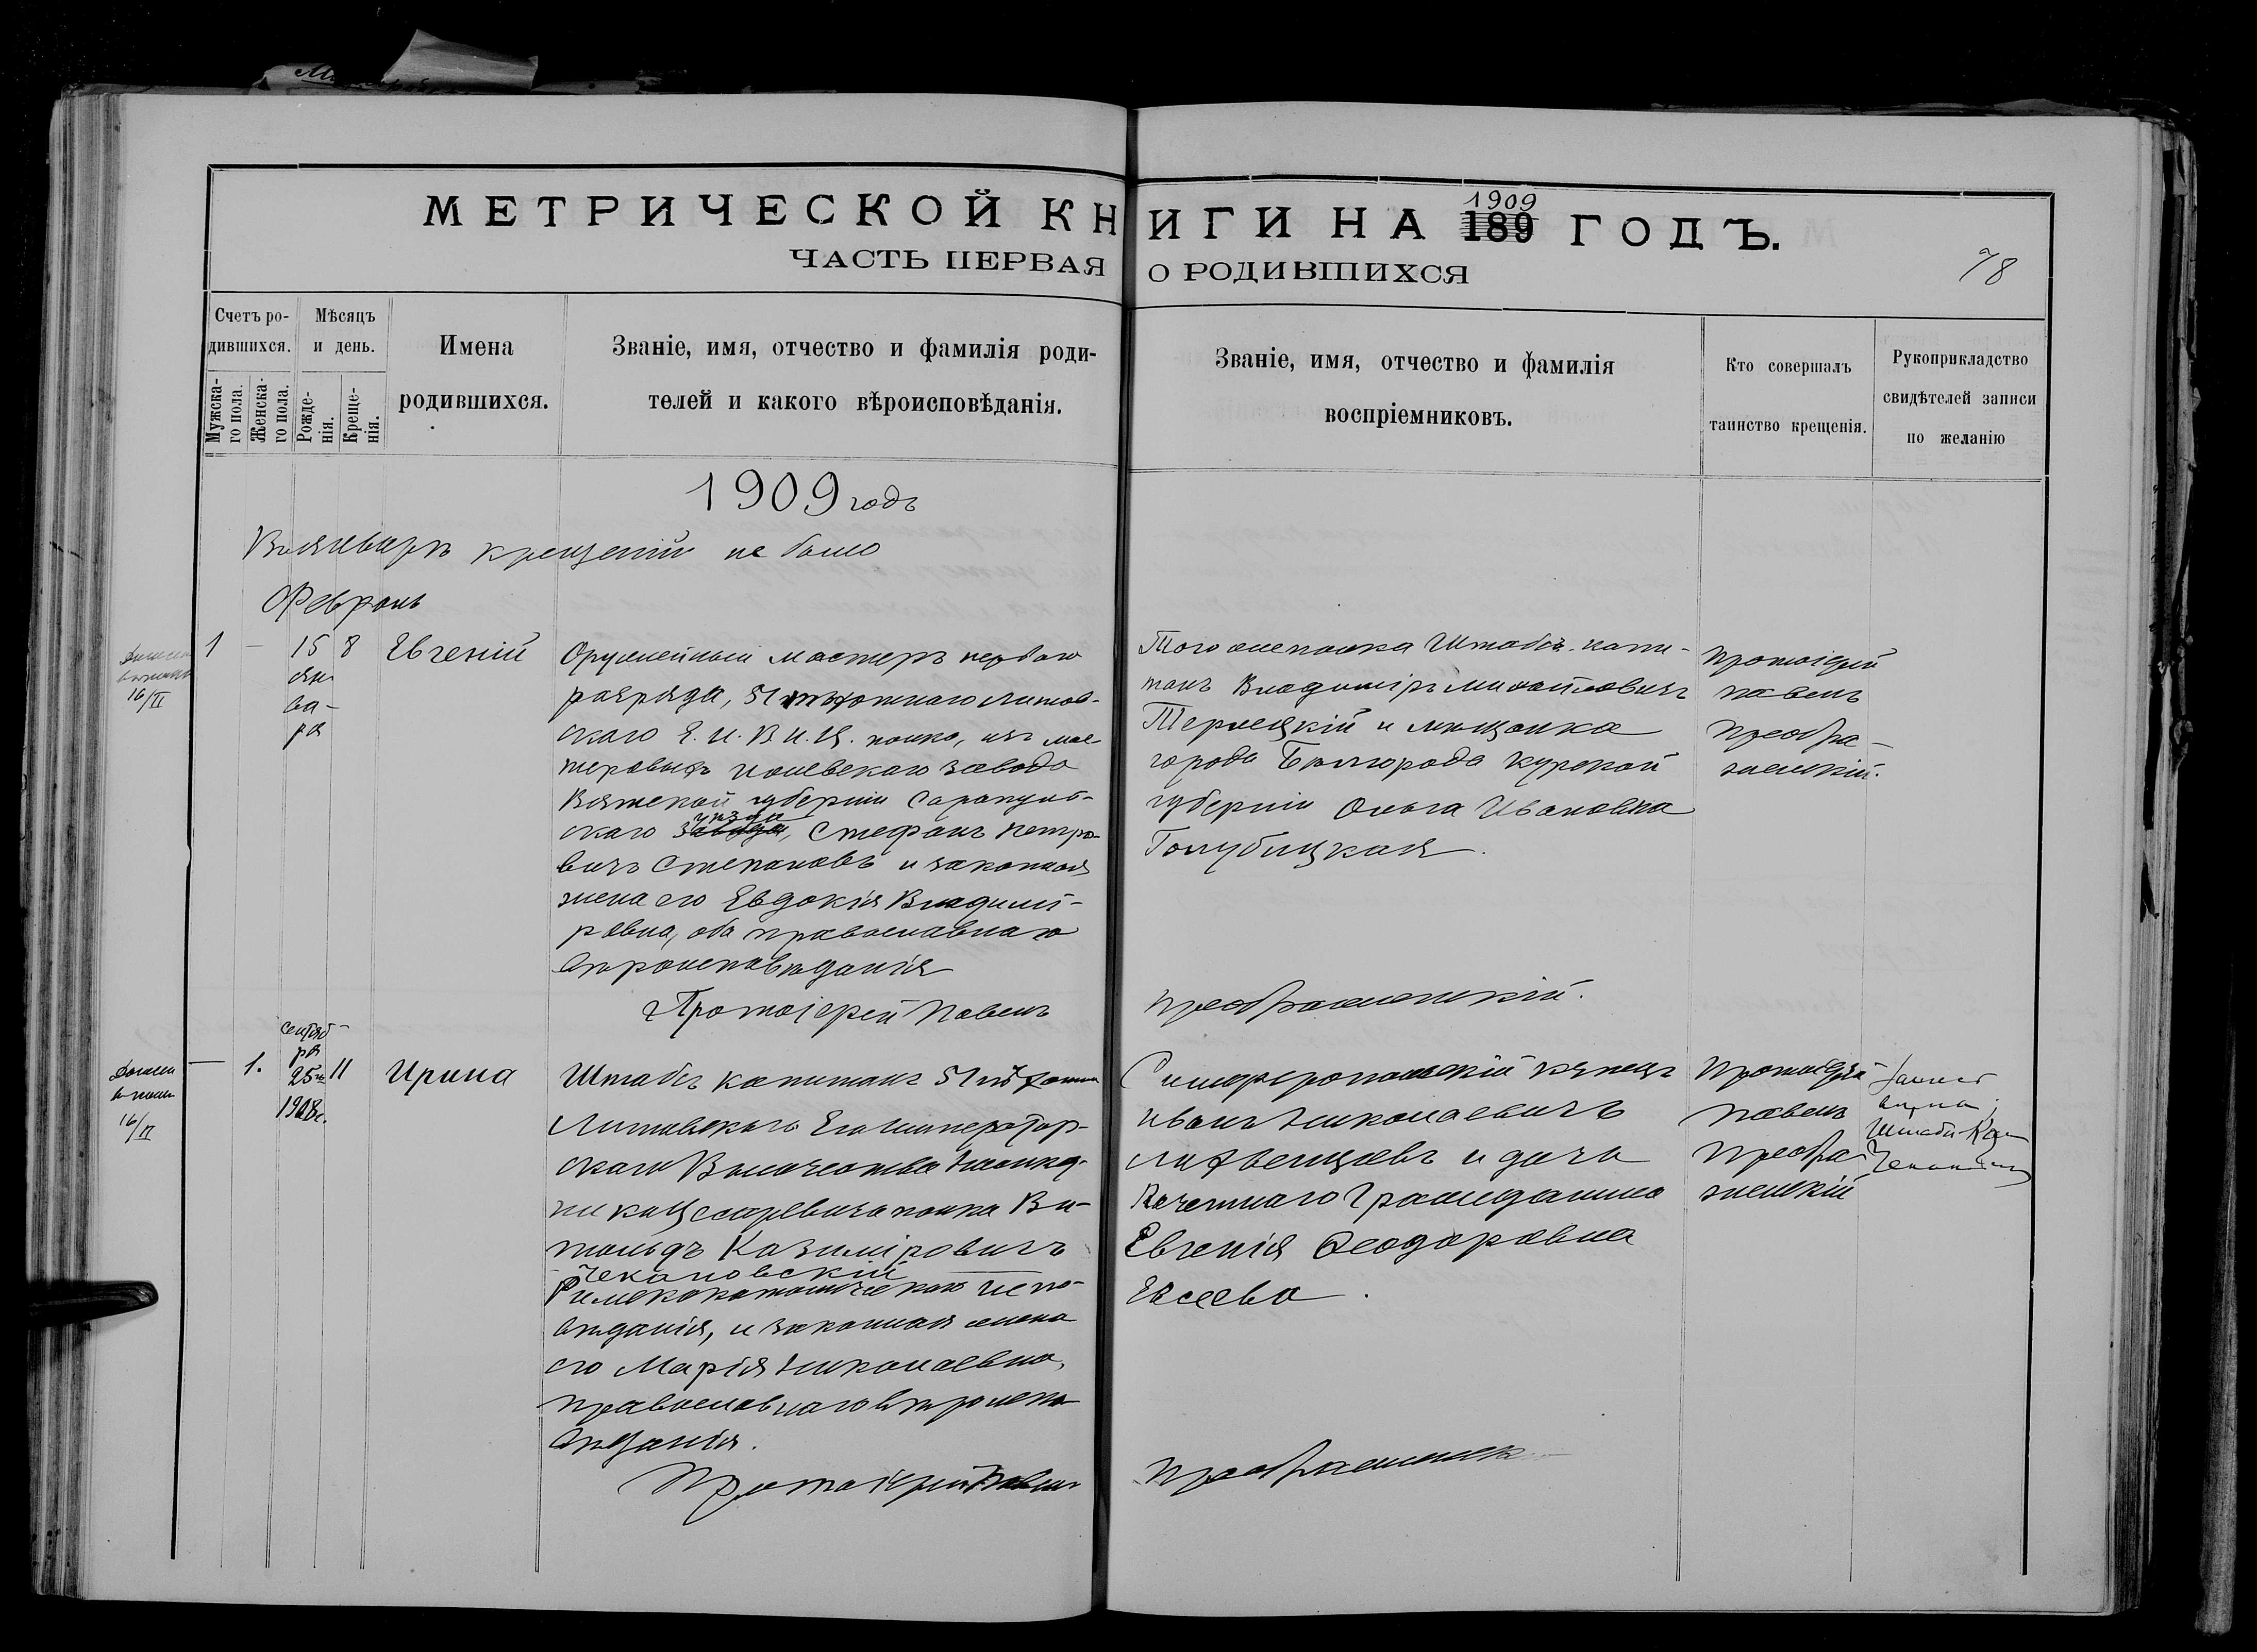 МЕТРИЧЕСКОЙ КНИГИ НА 1909 189 ГОДЪ.
ЧАСТЬ ПЕРВАЯ О РОДИВШИХСЯ
78
Счетъ ро-
дившихся.
Мужска-
го пола.
Женска-
го пола.
Мѣсяцъ
и день.
Рожде-
нія.
Креще-
нія.
Имена
родившихся.
Званіе, имя, отчество и фамилія роди-
телей и какого вѣроисповѣданія.
Званіе, имя, отчество и фамилія
воспріемниковъ.
Кто совершалъ
таинство крещенія.
Рукоприкладство
свидѣтелей записи
по желанію
1909 годъ
Въ январѣ крещеній не было
Февраль
16/II
1
—
15
ян
ва-
ря
8
Евгеній
Оружейный мастеръ перваго
разряда, 51 пѣхотнаго Литов-
скаго Е. И. В. Н. Ц. полка, изъ мас-
теровыхъ Ижевскаго завода
Вятской губерніи Сарапуль-
скаго завода уѣзда, Стефанъ Петро-
вичъ Степановъ и законная
жена его Евдокія Владимі-
ровна, оба православнаго
вѣроисповѣданія
Протоіерей Павелъ
Того же полка Штабсъ-капи-
танъ Владиміръ Михайловичъ
Терлецкій и мѣщанка
города Бѣлгорода Курской
губерніи Ольга Ивановна
Голубицкая.
Преображенскій.
Протоіерей
Павелъ
Преобра-
женскій.
16/II
—
1.
сентяб-
ря
25го
1908 г.
11
Ирина
Штабсъ капитанъ 51 пѣхотн
Литовскаго Его Император-
скаго Высочества Наслѣд-
ника Цесаревича полка Ви-
тольдъ Казиміровичъ
Чекановскій
Римскокатолическаго испо-
вѣданія, и законная жена
его Марія Николаевна,
православнаго вѣроиспо
вѣданія.
Протоіерей Павелъ
Симферопольскій купецъ
Иванъ Николаевичъ
Литвенцевъ и дочь
Почетнаго Гражданина
Евгенія Ѳеодоровна
Евсеева.
Преображенск
Протоіерей
Павелъ
Преобра-
женскій
Штабсъ-Кап